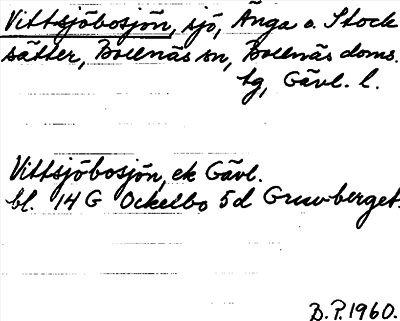 Vittsjöbosjön, sjö, Änga o. Stock
sätter, Bollnäs sn, Bollnäs doms.
tg, Gävl. l.
Vittsjöbosjön, ek Gävl.
bl. 14 G Ockelbo 5d Gruvberget.
B.P. 1960.